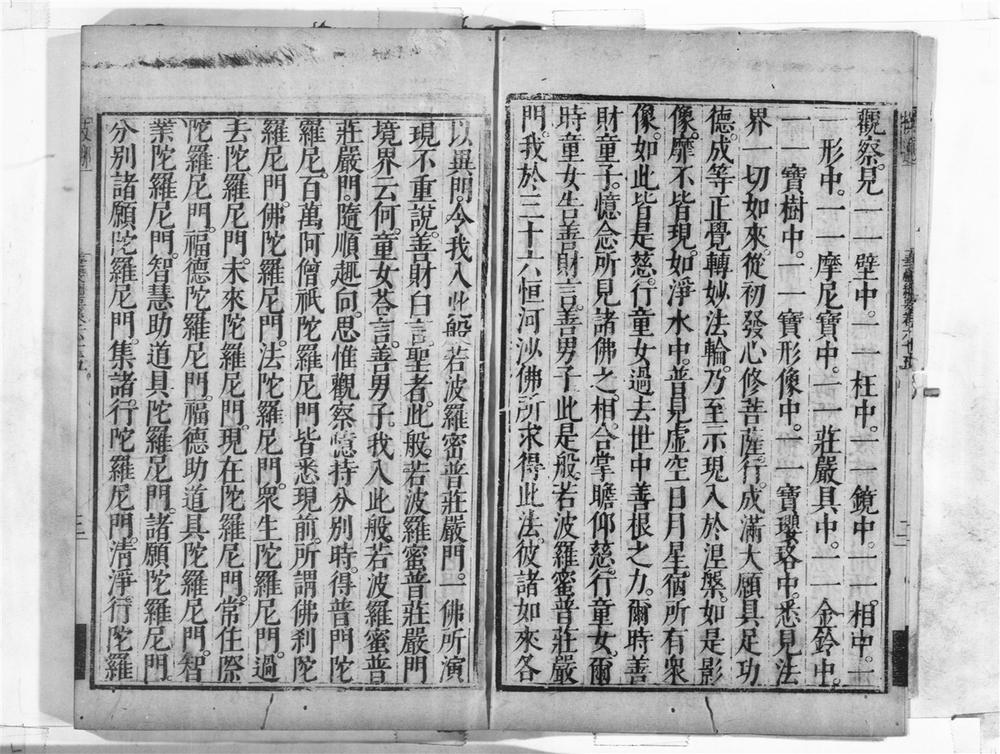 觀察。見一一壁中。一一柱中。一一鏡中。一一相中。一
一形中。一一摩尼寶中。一一莊嚴具中。一一金鈴中。
一一寶樹中。一一寶形像中。一一寶瓔珞中。悉見法
界一切如來。從初發心修菩薩行。成滿大願具足功
德。成等正覺轉妙法輪。乃至示現入於涅槃。如是影
像。靡不皆現。如淨水中。普見虛空日月星宿所有衆
像。如此皆是慈行童女過去世中善根之力。爾時善
財童子。憶念所見諸佛之相。合掌瞻仰慈行童女。爾
時童女告善財言。善男子。此是般若波羅蜜普莊嚴
門。我於三十六恒河沙佛所求得此法。彼諸如來各
以異門。令我入此般若波羅蜜普莊嚴門。一佛所演
現不重說。善財白言。聖者此般若波羅蜜普莊嚴門
境界云何。童女荅言。善男子。我入此般若波羅蜜普
莊嚴門。隨順趣向。思惟觀察。憶持分別時。得普門陀
羅尼。百萬阿僧祇陀羅尼門皆悉現前。所謂佛刹陀
羅尼門。佛陀羅尼門。法陀羅尼門。衆生陀羅尼門。過
去陀羅尼門。未來陀羅尼門。現在陀羅尼門。常住際
陀羅尼門。福德陀羅尼門。福德助道具陀羅尼門。智
慧陀羅尼門。智慧助道具陀羅尼門。諸願陀羅尼門
分別諸願陀羅尼門。集諸行陀羅尼門。清淨行陀羅